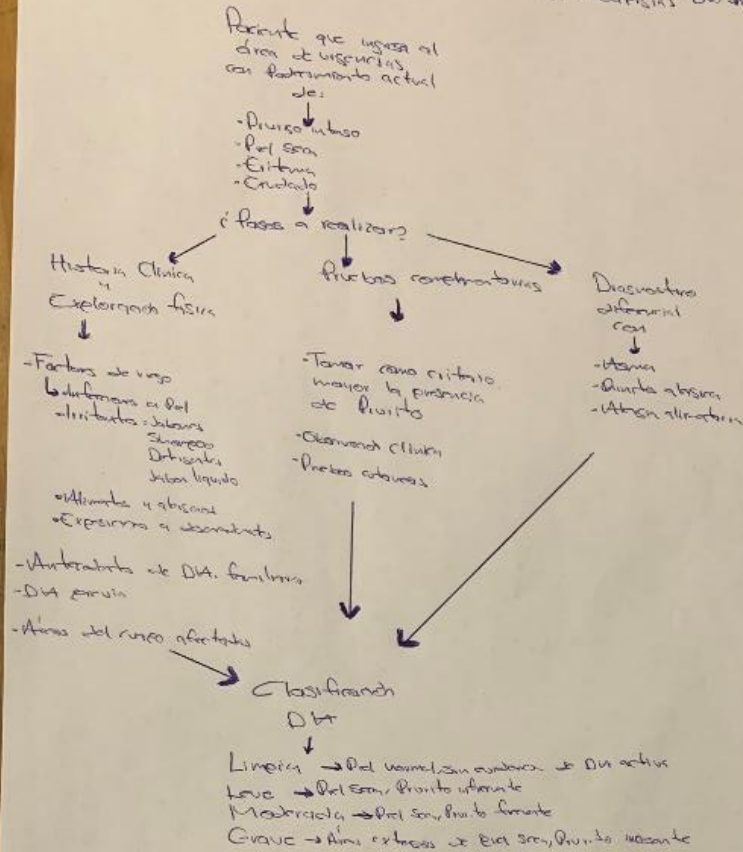 Paciente que ingresa al
área de urgencias
con Padecimiento actual
de:
- Prurigo intenso
- Piel seca
- Eritema
- Exudado
¿Pasos a realizar?
Historia Clínica
y
Exploración física
- Factores de riesgo
- Irritantes = Jabones
Shampoo
Detergentes
Jabón líquido
• Alimentos y
• Exposición a
- Antecedente de DA. familiares
- DA previa
- Áreas del cuerpo afectadas
Pruebas complementarias
- Tomar como criterio
mayor la presencia
de Prurito
- Observación clínica
- Pruebas cutáneas
Diagnostico
diferencial
con
- Asma
- Rinitis alérgica
- Alergia alimentaria
Clasificación
DA
Limpia → Piel normal, sin evidencia de DA activa
Leve → Piel seca, Prurito infrecuente
Moderada → Piel seca, Prurito frecuente
Grave → Áreas extensas de piel seca, Prurito incesante